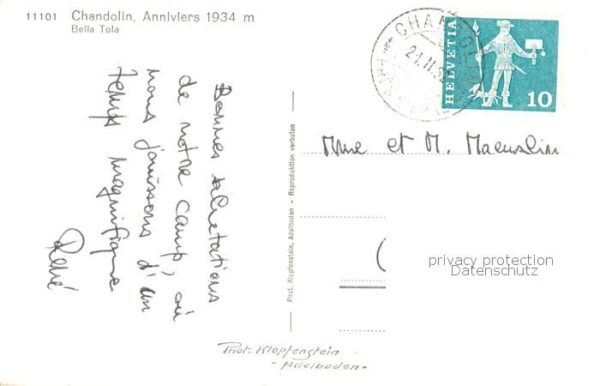 11101 Chandolin, Anniviers 1934 m
Bella Tola
Bonnes salutations
de notre camp, où
nous jouissons d'un
temps magnifique
René
Phot. Klopfenstein, Adelboden - Reproduktion verboten
CHANDOLIN
21.II.62
HELVETIA
10
Mme et M. Maeuslin
privacy protection
Datenschutz
Phot. Klopfenstein
- Adelboden -